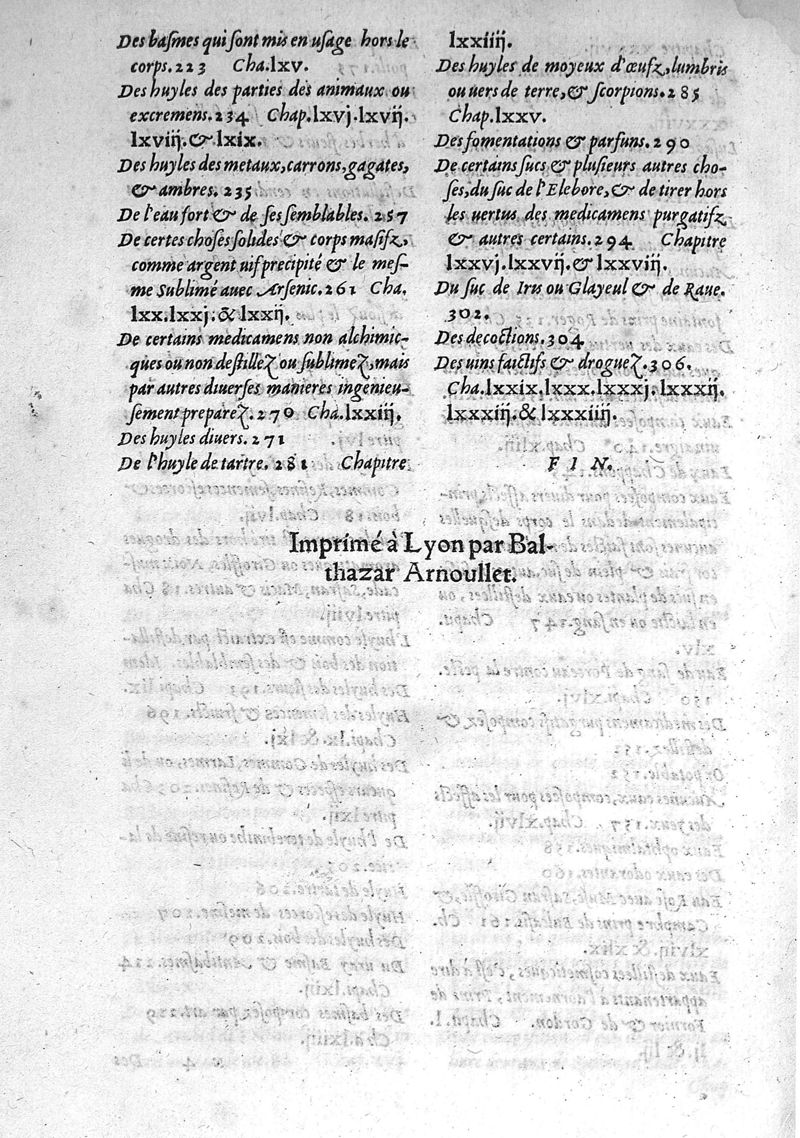 Des basmes qui sont mis en usage hors le
corps. 223 Cha. lxv.
Des huyles des parties des animaux ou
excremens. 234 Chap. lxvj. lxvij.
lxviij. & lxix.
Des huyles des metaux, carrons, gagates,
& ambres. 235
De l'eau fort & de ses semblables. 257
De certes choses solides & corps masifz,
comme argent uif precipité & le mes-
me Sublimé auec Arsenic. 261 Cha.
lxx. lxxj. & lxxij.
De certains medicamens non alchimic-
ques ou non destillez ou sublimez, mais
par autres diuerses manieres ingenieu-
sement preparez. 270 Cha. lxxiij.
Des huyles diuers. 271
De l'huyle de tartre. 281 Chapitre
lxxiiij.
Des huyles de moyeux d'œufz, lumbris
ou uers de terre, & scorpions. 285
Chap. lxxv.
Des fomentations & parfuns. 290
De certains sucs & plusieurs autres cho-
ses, du suc de l'Elebore, & de tirer hors
les uertus des medicamens purgatifz
& autres certains. 294 Chapitre
lxxvj. lxxvij. & lxxviij.
Du suc de Irus ou Glayeul & de Raue.
302.
Des decoctions. 304
Des uins faictifs & droguez. 306.
Cha. lxxix. lxxx. lxxxj. lxxxij.
lxxxiij. & lxxxiiij.
F I N.
Imprimé à Lyon par Bal-
thazar Arnoullet.